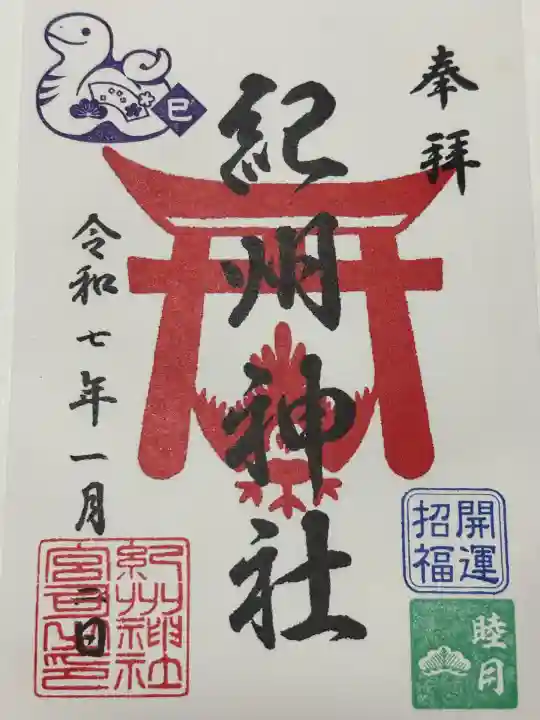 奉拝
紀州神社
巳
令和七年一月二日
開運
招福
睦月
紀州神社
宮司之印